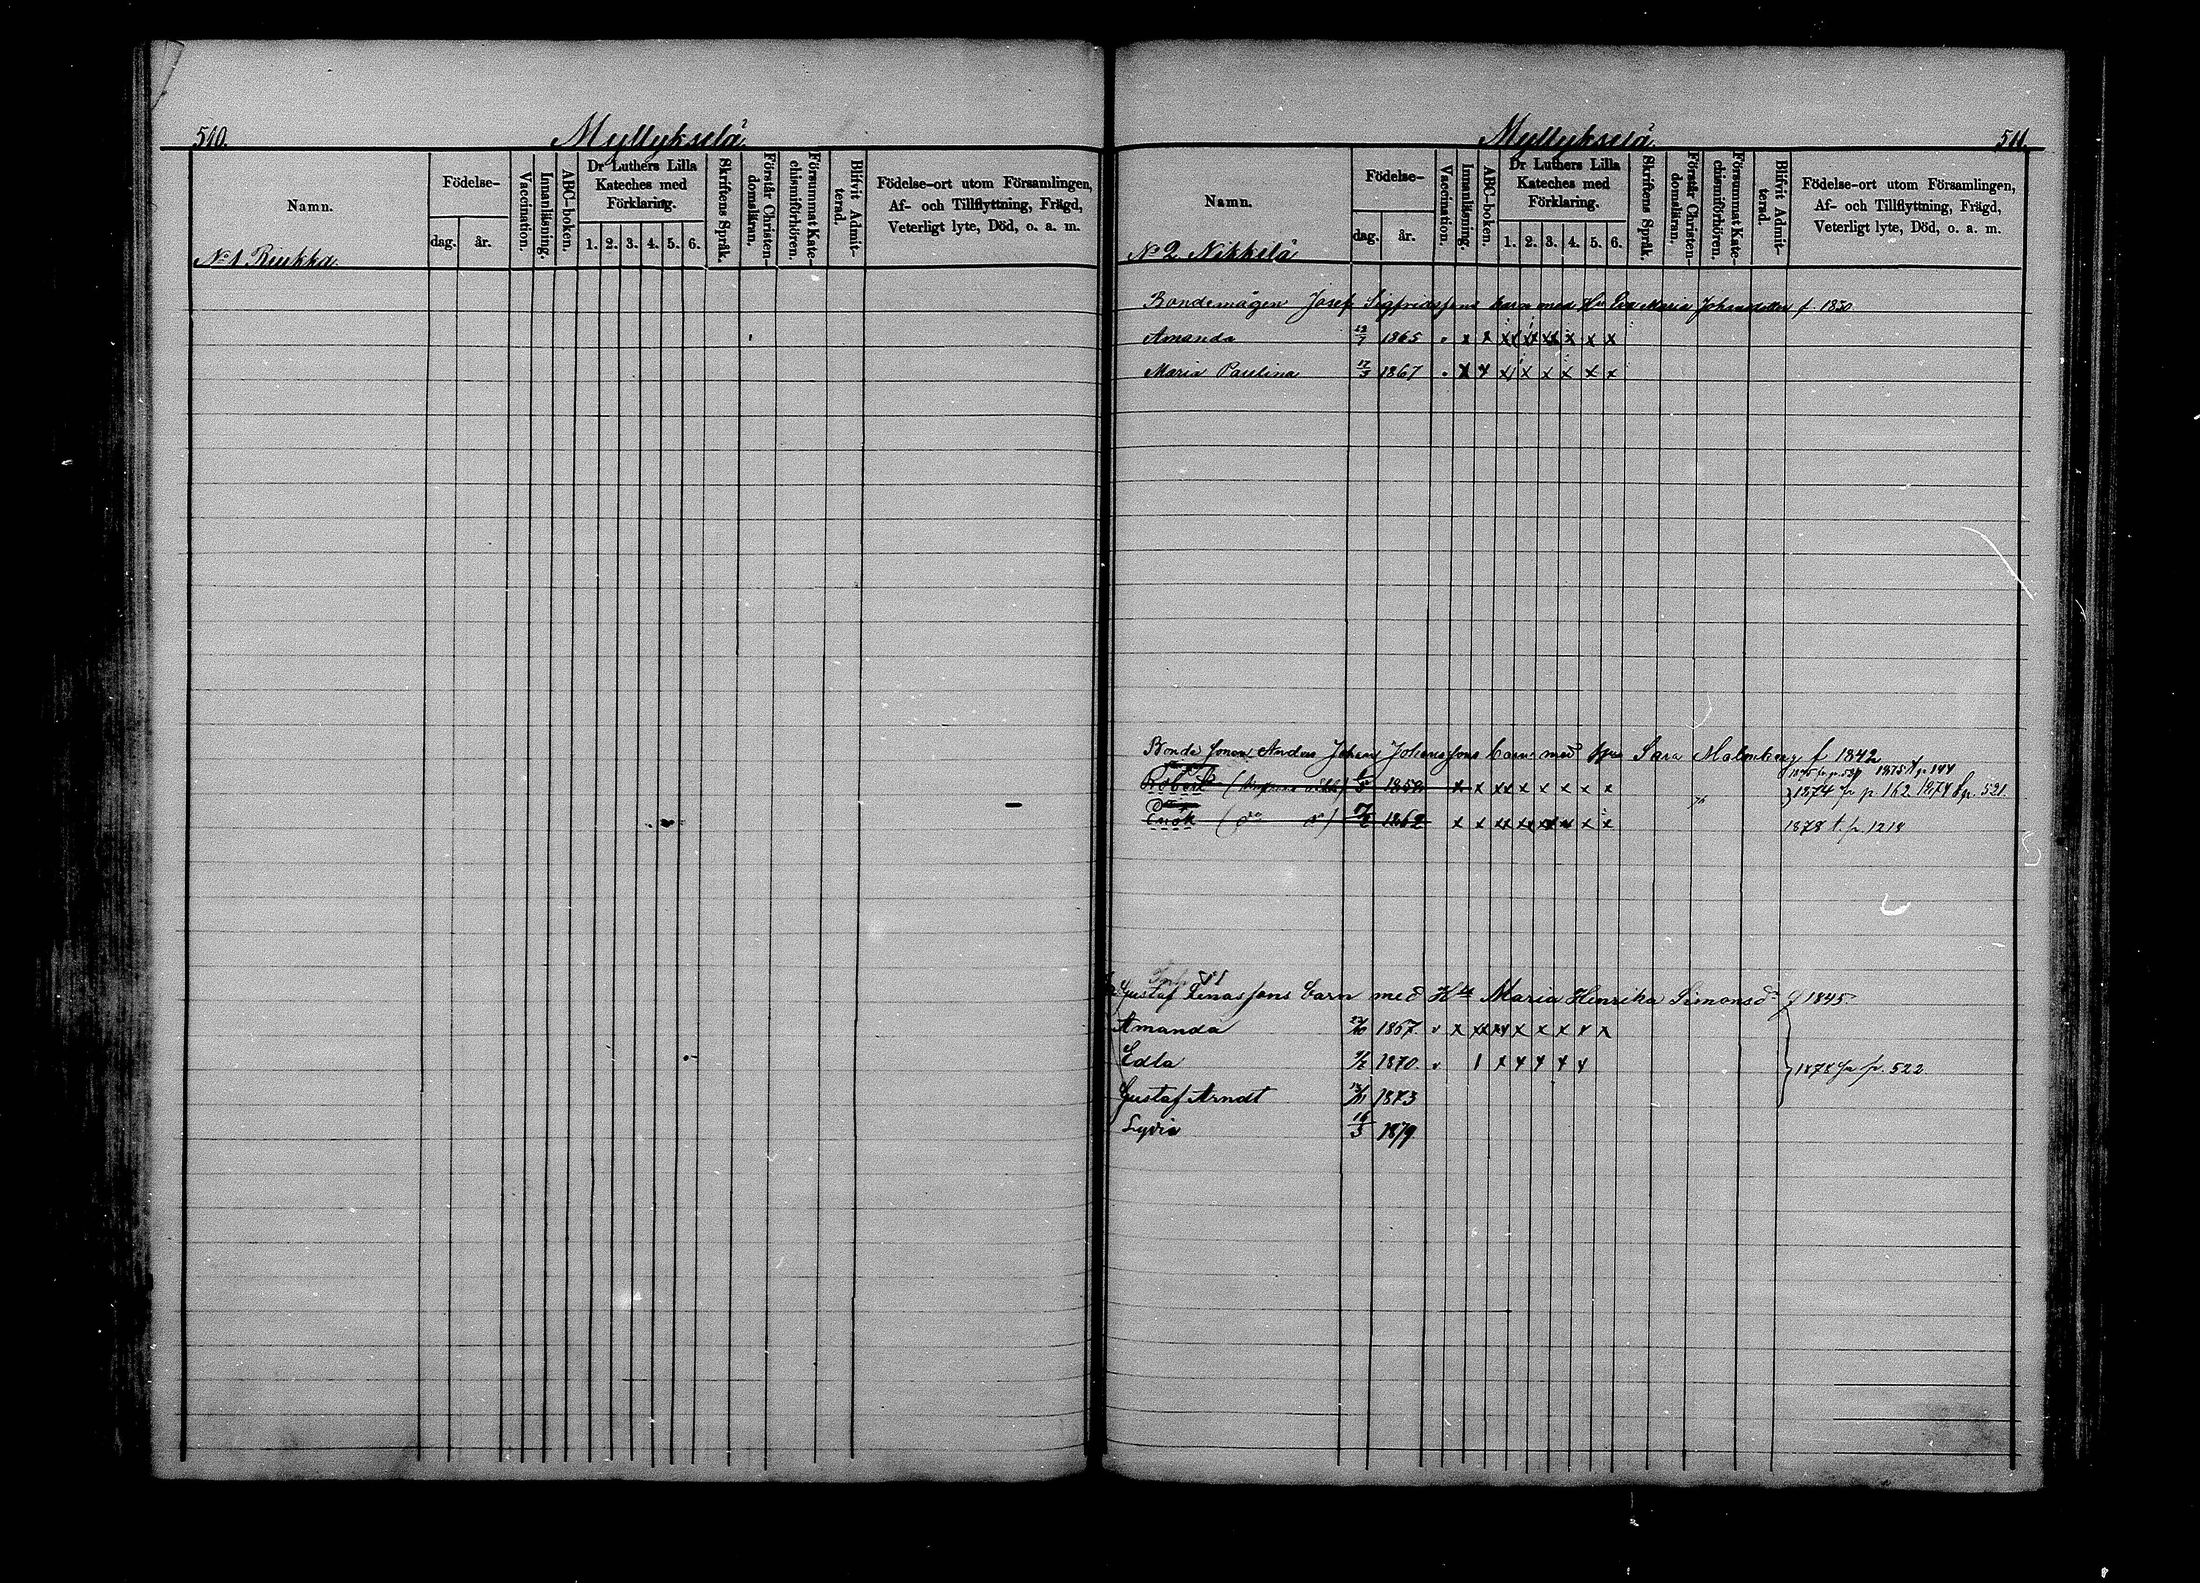 510. Myllykselä
Namn. Födelse- Vaccination. Innanläsning. ABC-boken. Dr Luthers Lilla Kateches med Förklaring. Skriftens Språk. Förstår Christendomsläran. Försummat Katechismiförhören. Blifvit Admitterad. Födelse-ort utom Församlingen, Af- och Tillflyttning, Frägd, Veterligt lyte, Död, o. a. m.
dag. år. 1. 2. 3. 4. 5. 6.
No 1 Riukka
Myllykselä 511.
Namn. Födelse- Vaccination. Innanläsning. ABC-boken. Dr Luthers Lilla Kateches med Förklaring. Skriftens Språk. Förstår Christendomsläran. Försummat Katechismiförhören. Blifvit Admitterad. Födelse-ort utom Församlingen, Af- och Tillflyttning, Frägd, Veterligt lyte, Död, o. a. m.
dag. år. 1. 2. 3. 4. 5. 6.
No 2 Nikkilä
Bondemågen Josef Sigfridssons barn med Hu Eva Maria Johansdotter f. 1830
Amanda 1865 x x x x x x x x
Maria Paulina 17/3 1867 x x x x x x x x
Bonde sonen Anders Johan Johanssons barn med Sara Malmberg f 1842
1875 t p 144
Robert 1859 x x xx x x x x x 1874 fr p. 162 1878 t p. 521.
Enok 1862 x x xx x x x x x 1878 t. p. 1214
Gustaf Enassons barn med Hu Maria Henrika Simonsd f 1845
Amanda 23/10 1867 x x x x x x x x
Edla 1870 1 x x x x x 1878 fr p. 522
Gustaf Arndt 13/11 1873
Lydia 16/3 1879